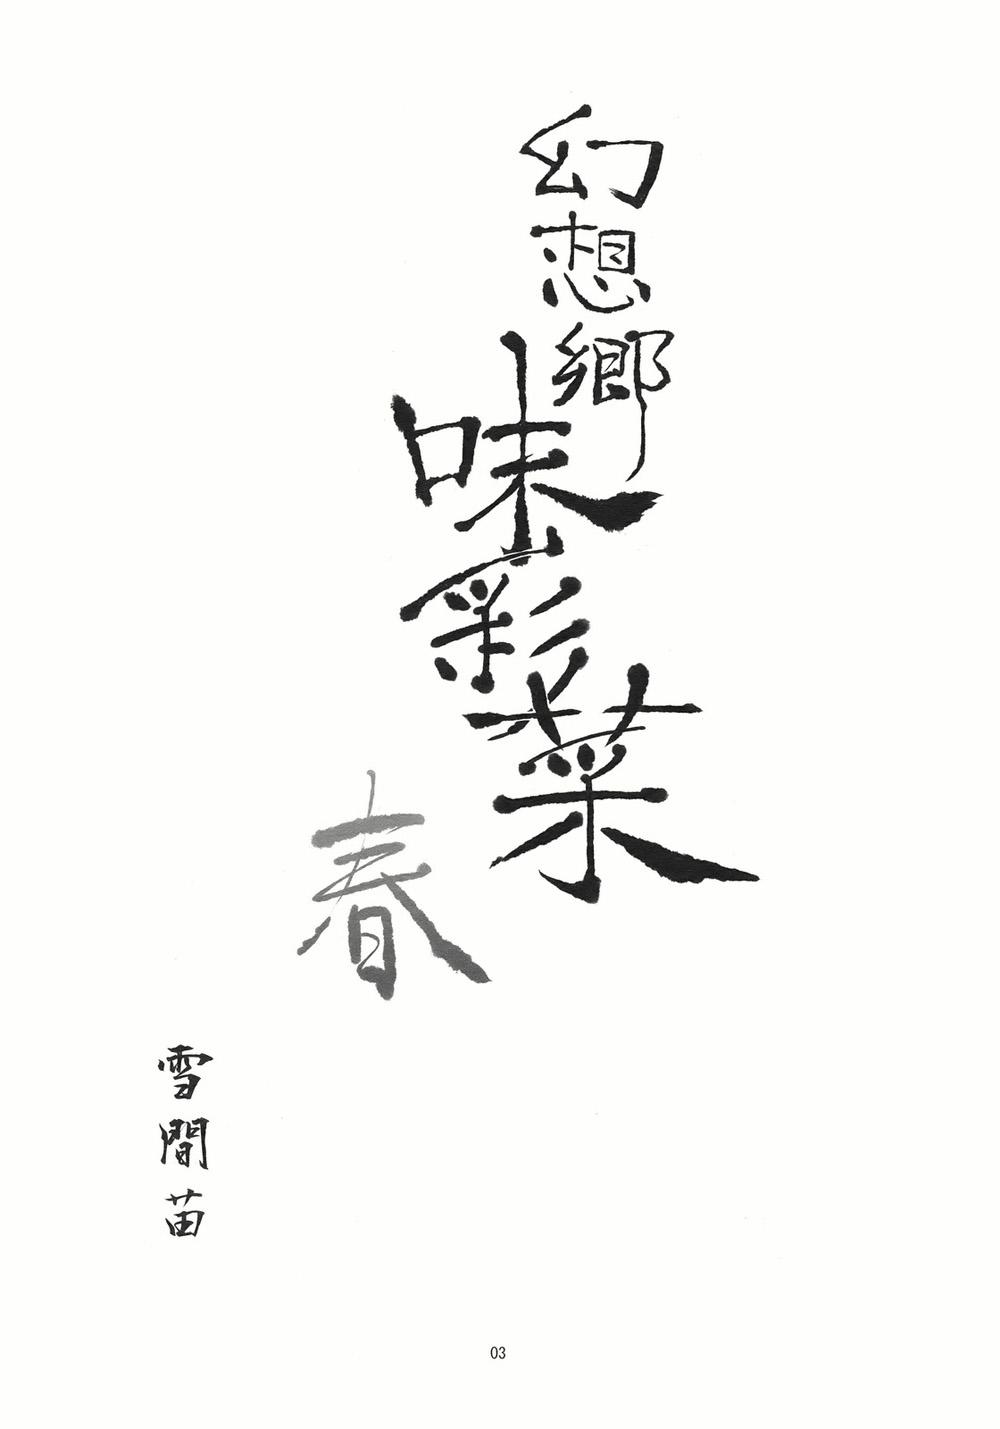 幻想郷
味彩菜
春
雪間苗
03